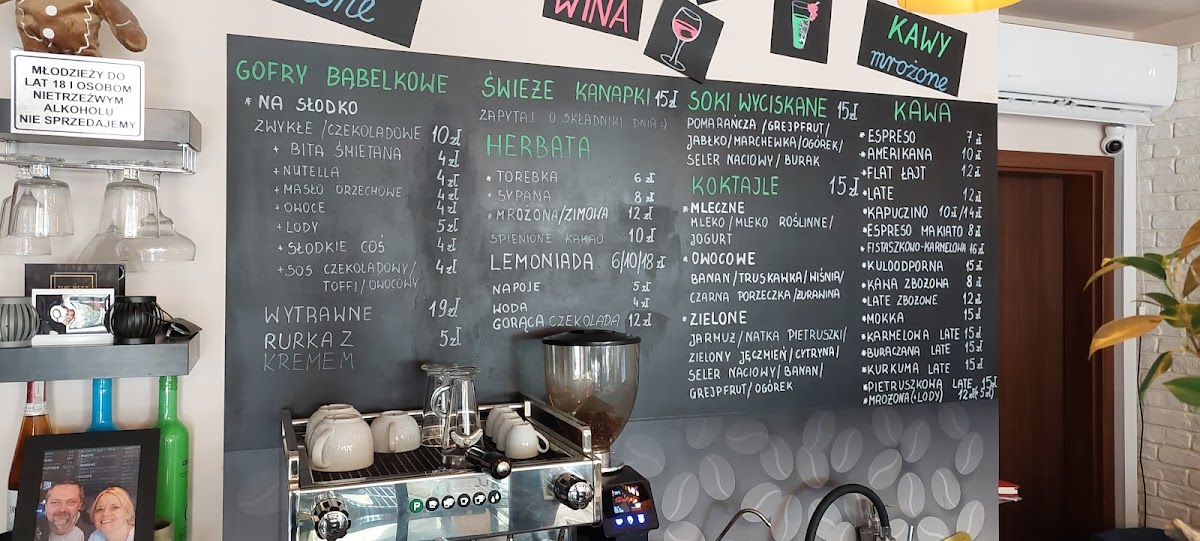 MŁODZIEŻY DO
LAT 18 I OSOBOM
NIETRZEŹWYM
ALKOHOLU
NIE SPRZEDAJEMY
WINA
KAWY
mrożone
GOFRY BĄBELKOWE
* NA SŁODKO
ZWYKŁE / CZEKOLADOWE 10 zł
+ BITA ŚMIETANA 4 zł
+ NUTELLA 4 zł
+ MASŁO ORZECHOWE 4 zł
+ OWOCE 4 zł
+ LODY 5 zł
+ SŁODKIE COŚ 4 zł
+ SOS CZEKOLADOWY/ 4 zł
TOFFI/OWOCOWY
WYTRAWNE 19 zł
RURKA Z 5 zł
KREMEM
ŚWIEŻE KANAPKI 15 zł
ZAPYTAJ O SKŁADNIKI DNIA :)
HERBATA
* TOREBKA 6 zł
* SYPANA 8 zł
* MROŻONA/ZIMOWA 12 zł
SPIENIONE KAKAO 10 zł
LEMONIADA 6/10/18 zł
NAPOJE 5 zł
WODA 4 zł
GORĄCA CZEKOLADA 12 zł
SOKI WYCISKANE 15 zł
POMARAŃCZA / GREJPFRUT/
JABŁKO/MARCHEWKA/OGÓREK/
SELER NACIOWY / BURAK
KOKTAJLE 15 zł
* MLECZNE
MLEKO/MLEKO ROŚLINNE/
JOGURT
* OWOCOWE
BANAN/TRUSKAWKA/WIŚNIA/
CZARNA PORZECZKA/ŻURAWINA
* ZIELONE
JARMUŻ/NATKA PIETRUSZKI/
ZIELONY JĘCZMIEŃ/CYTRYNA/
SELER NACIOWY/BANAN/
GREJPFRUT/OGÓREK
KAWA
* ESPRESO 7 zł
* AMERIKANA 10 zł
* FLAT ŁAJT 12 zł
* LATE 12 zł
* KAPUCZINO 10 zł/14 zł
* ESPRESO MAKIATO 8 zł
* FISTASZKOWO-KARMELOWA 16 zł
* KULOODPORNA 15 zł
* KAWA ZBOŻOWA 8 zł
* LATE ZBOŻOWE 12 zł
* MOKKA 15 zł
* KARMELOWA LATE 15 zł
* BURACZANA LATE 15 zł
* KURKUMA LATE 15 zł
* PIETRUSZKOWA LATE 15 zł
* MROŻONA (+LODY) 12 zł (+5 zł)